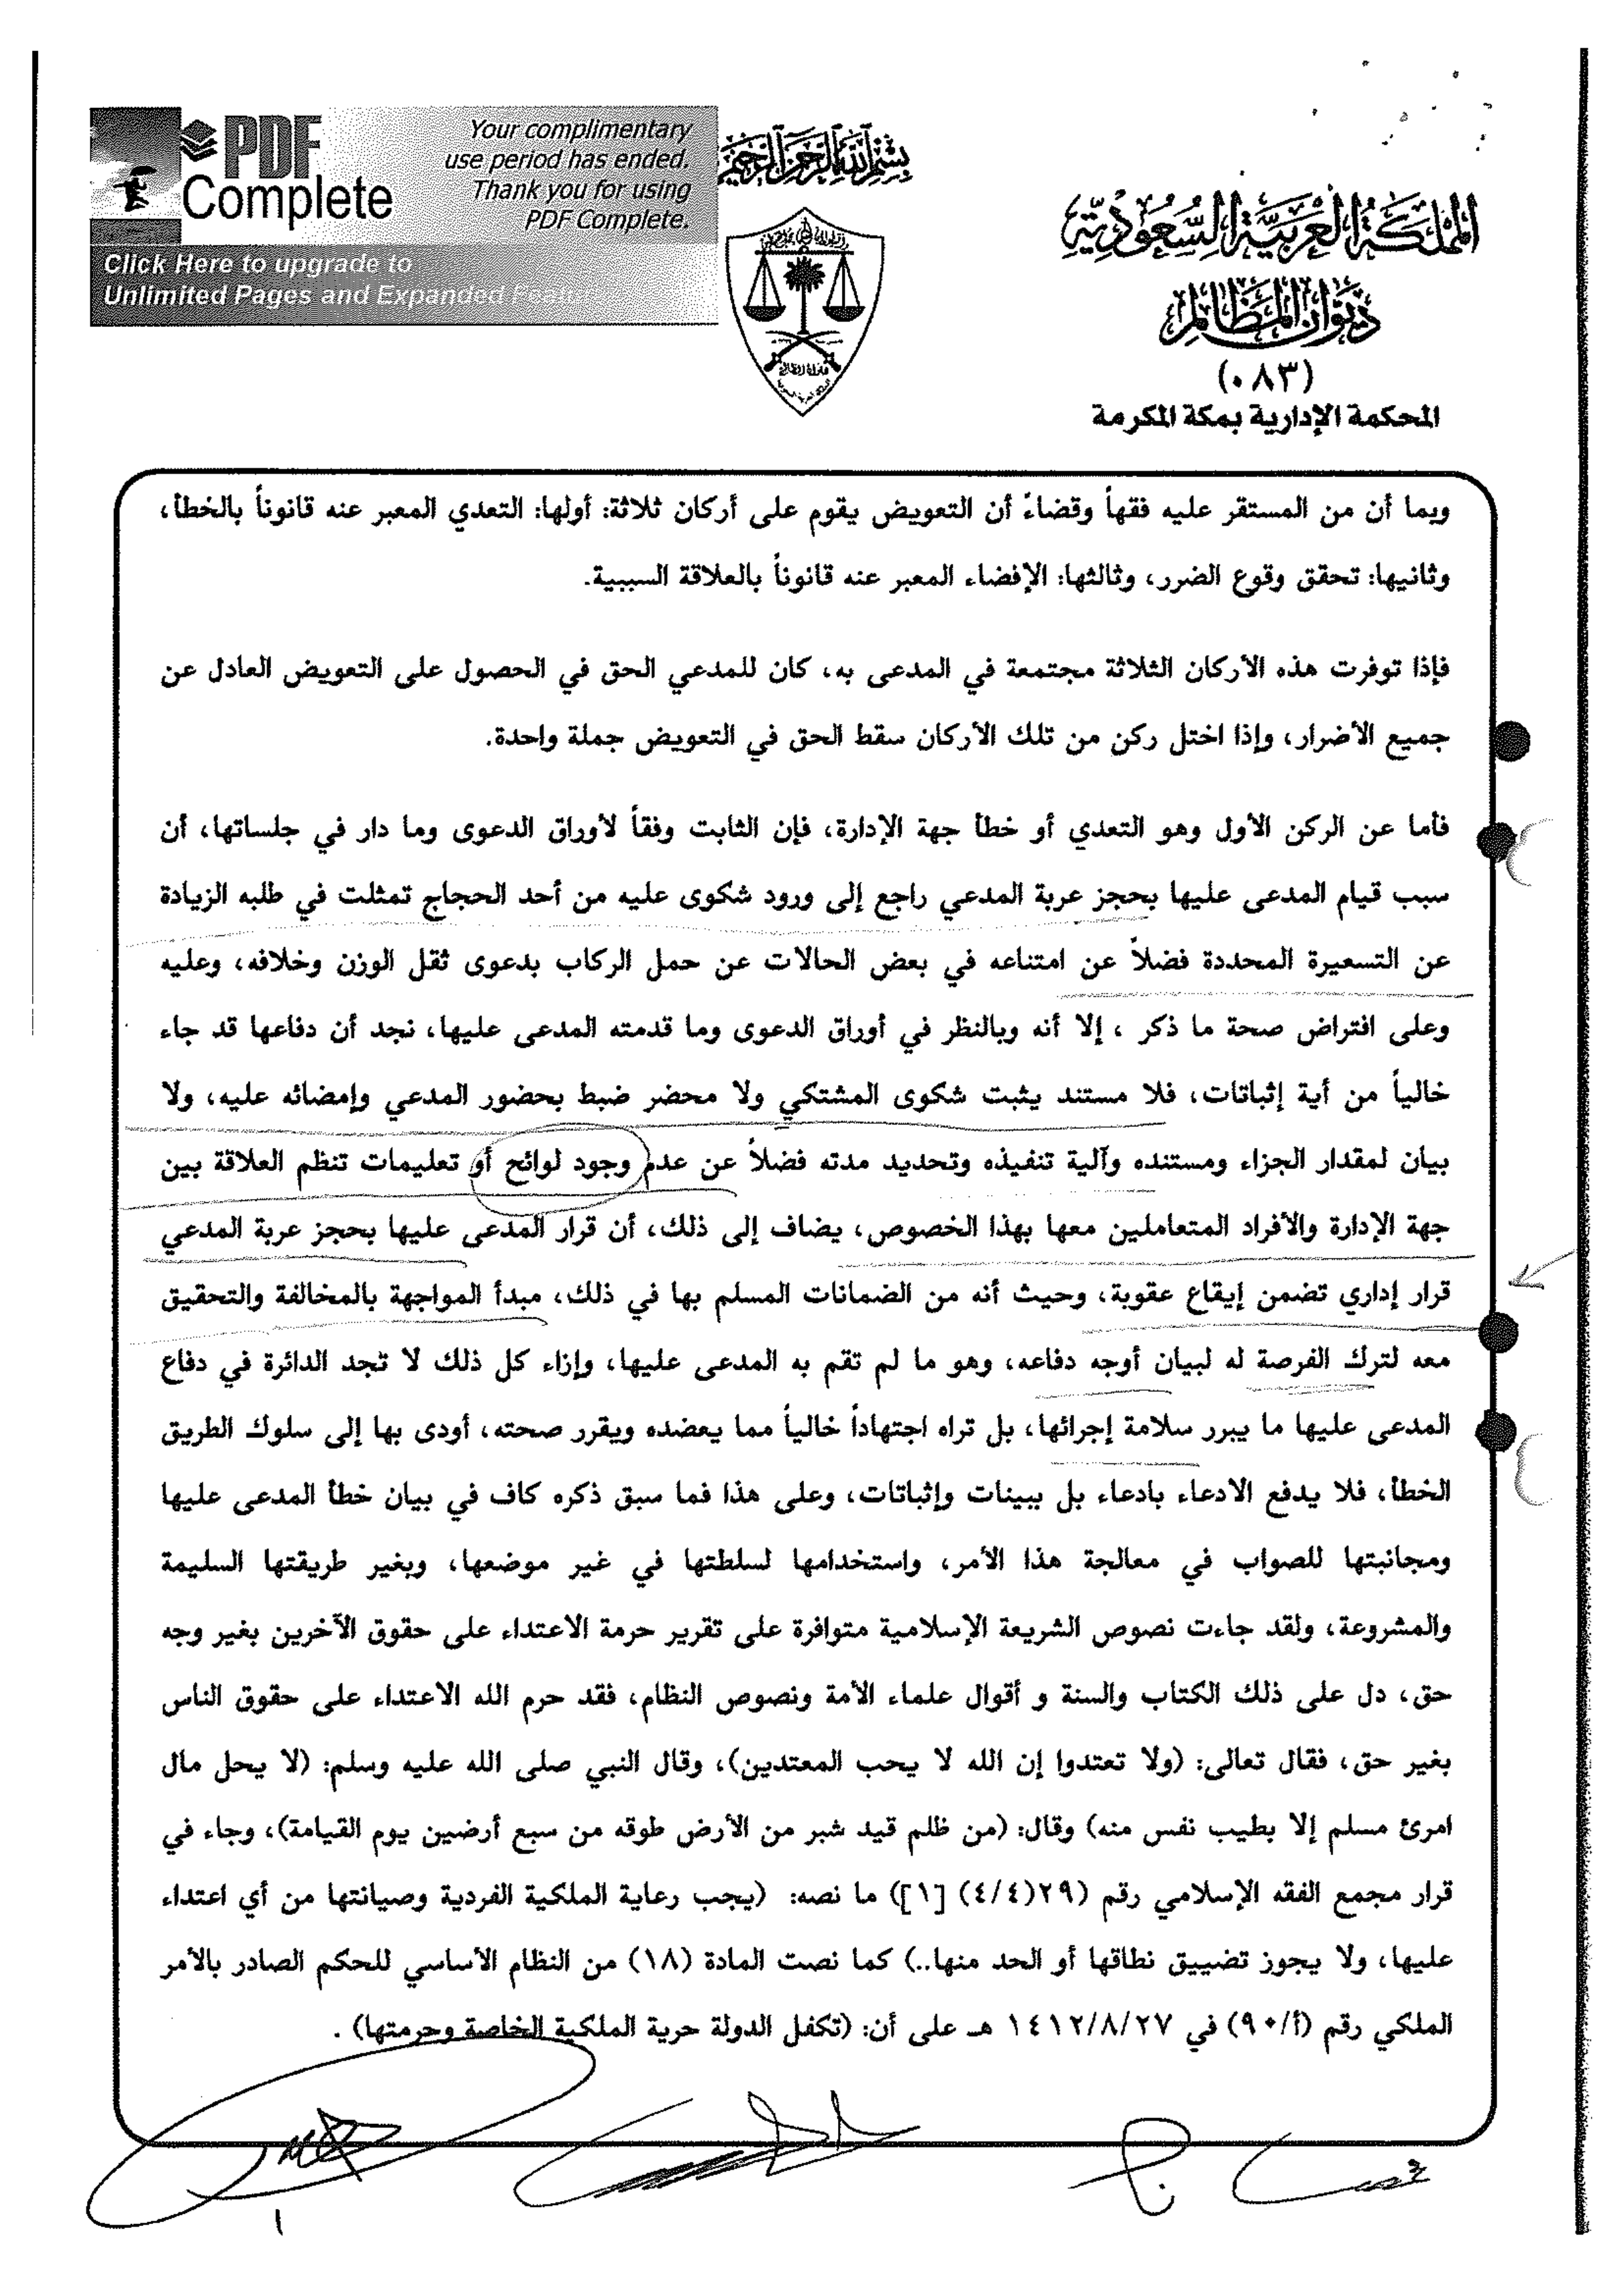 PDF Complete
Your complimentary
use period has ended.
Thank you for using
PDF Complete.
Click Here to upgrade to
Unlimited Pages and Expanded Features
بسم الله الرحمن الرحيم
المملكة العربية السعودية
ديوان المظالم
(٠٨٣)
المحكمة الإدارية بمكة المكرمة
وبما أن من المستقر عليه فقهاً وقضاءً أن التعويض يقوم على أركان ثلاثة: أولها: التعدي المعبر عنه قانوناً بالخطأ،
وثانيها: تحقق وقوع الضرر، وثالثها: الإفضاء المعبر عنه قانوناً بالعلاقة السببية.
فإذا توفرت هذه الأركان الثلاثة مجتمعة في المدعى به، كان للمدعي الحق في الحصول على التعويض العادل عن
جميع الأضرار، وإذا اختل ركن من تلك الأركان سقط الحق في التعويض جملة واحدة.
فأما عن الركن الأول وهو التعدي أو خطأ جهة الإدارة، فإن الثابت وفقاً لأوراق الدعوى وما دار في جلساتها، أن
سبب قيام المدعى عليها بحجز عربة المدعي راجع إلى ورود شكوى عليه من أحد الحجاج تمثلت في طلبه الزيادة
عن التسعيرة المحددة فضلاً عن امتناعه في بعض الحالات عن حمل الركاب بدعوى ثقل الوزن وخلافه، وعليه
وعلى افتراض صحة ما ذكر ، إلا أنه وبالنظر في أوراق الدعوى وما قدمته المدعى عليها، نجد أن دفاعها قد جاء
خالياً من أية إثباتات، فلا مستند يثبت شكوى المشتكي ولا محضر ضبط بحضور المدعي وإمضائه عليه، ولا
بيان لمقدار الجزاء ومستنده وآلية تنفيذه وتحديد مدته فضلاً عن عدم وجود لوائح أو تعليمات تنظم العلاقة بين
جهة الإدارة والأفراد المتعاملين معها بهذا الخصوص، يضاف إلى ذلك، أن قرار المدعى عليها بحجز عربة المدعي
قرار إداري تضمن إيقاع عقوبة، وحيث أنه من الضمانات المسلم بها في ذلك، مبدأ المواجهة بالمخالفة والتحقيق
معه لترك الفرصة له لبيان أوجه دفاعه، وهو ما لم تقم به المدعى عليها، وإزاء كل ذلك لا تجد الدائرة في دفاع
المدعى عليها ما يبرر سلامة إجرائها، بل تراه اجتهاداً خالياً مما يعضده ويقرر صحته، أودى بها إلى سلوك الطريق
الخطأ، فلا يدفع الادعاء بادعاء بل ببينات وإثباتات، وعلى هذا فما سبق ذكره كاف في بيان خطأ المدعى عليها
ومجانبتها للصواب في معالجة هذا الأمر، واستخدامها لسلطتها في غير موضعها، وبغير طريقتها السليمة
والمشروعة، ولقد جاءت نصوص الشريعة الإسلامية متوافرة على تقرير حرمة الاعتداء على حقوق الآخرين بغير وجه
حق، دل على ذلك الكتاب والسنة و أقوال علماء الأمة ونصوص النظام، فقد حرم الله الاعتداء على حقوق الناس
بغير حق، فقال تعالى: (ولا تعتدوا إن الله لا يحب المعتدين)، وقال النبي صلى الله عليه وسلم: (لا يحل مال
امرئ مسلم إلا بطيب نفس منه) وقال: (من ظلم قيد شبر من الأرض طوقه من سبع أرضين يوم القيامة)، وجاء في
قرار مجمع الفقه الإسلامي رقم (٢٩(٤/٤) [١]) ما نصه: (يجب رعاية الملكية الفردية وصيانتها من أي اعتداء
عليها، ولا يجوز تضييق نطاقها أو الحد منها..) كما نصت المادة (١٨) من النظام الأساسي للحكم الصادر بالأمر
الملكي رقم (أ/٩٠) في ١٤١٢/٨/٢٧ هـ على أن: (تكفل الدولة حرية الملكية الخاصة وحرمتها) .